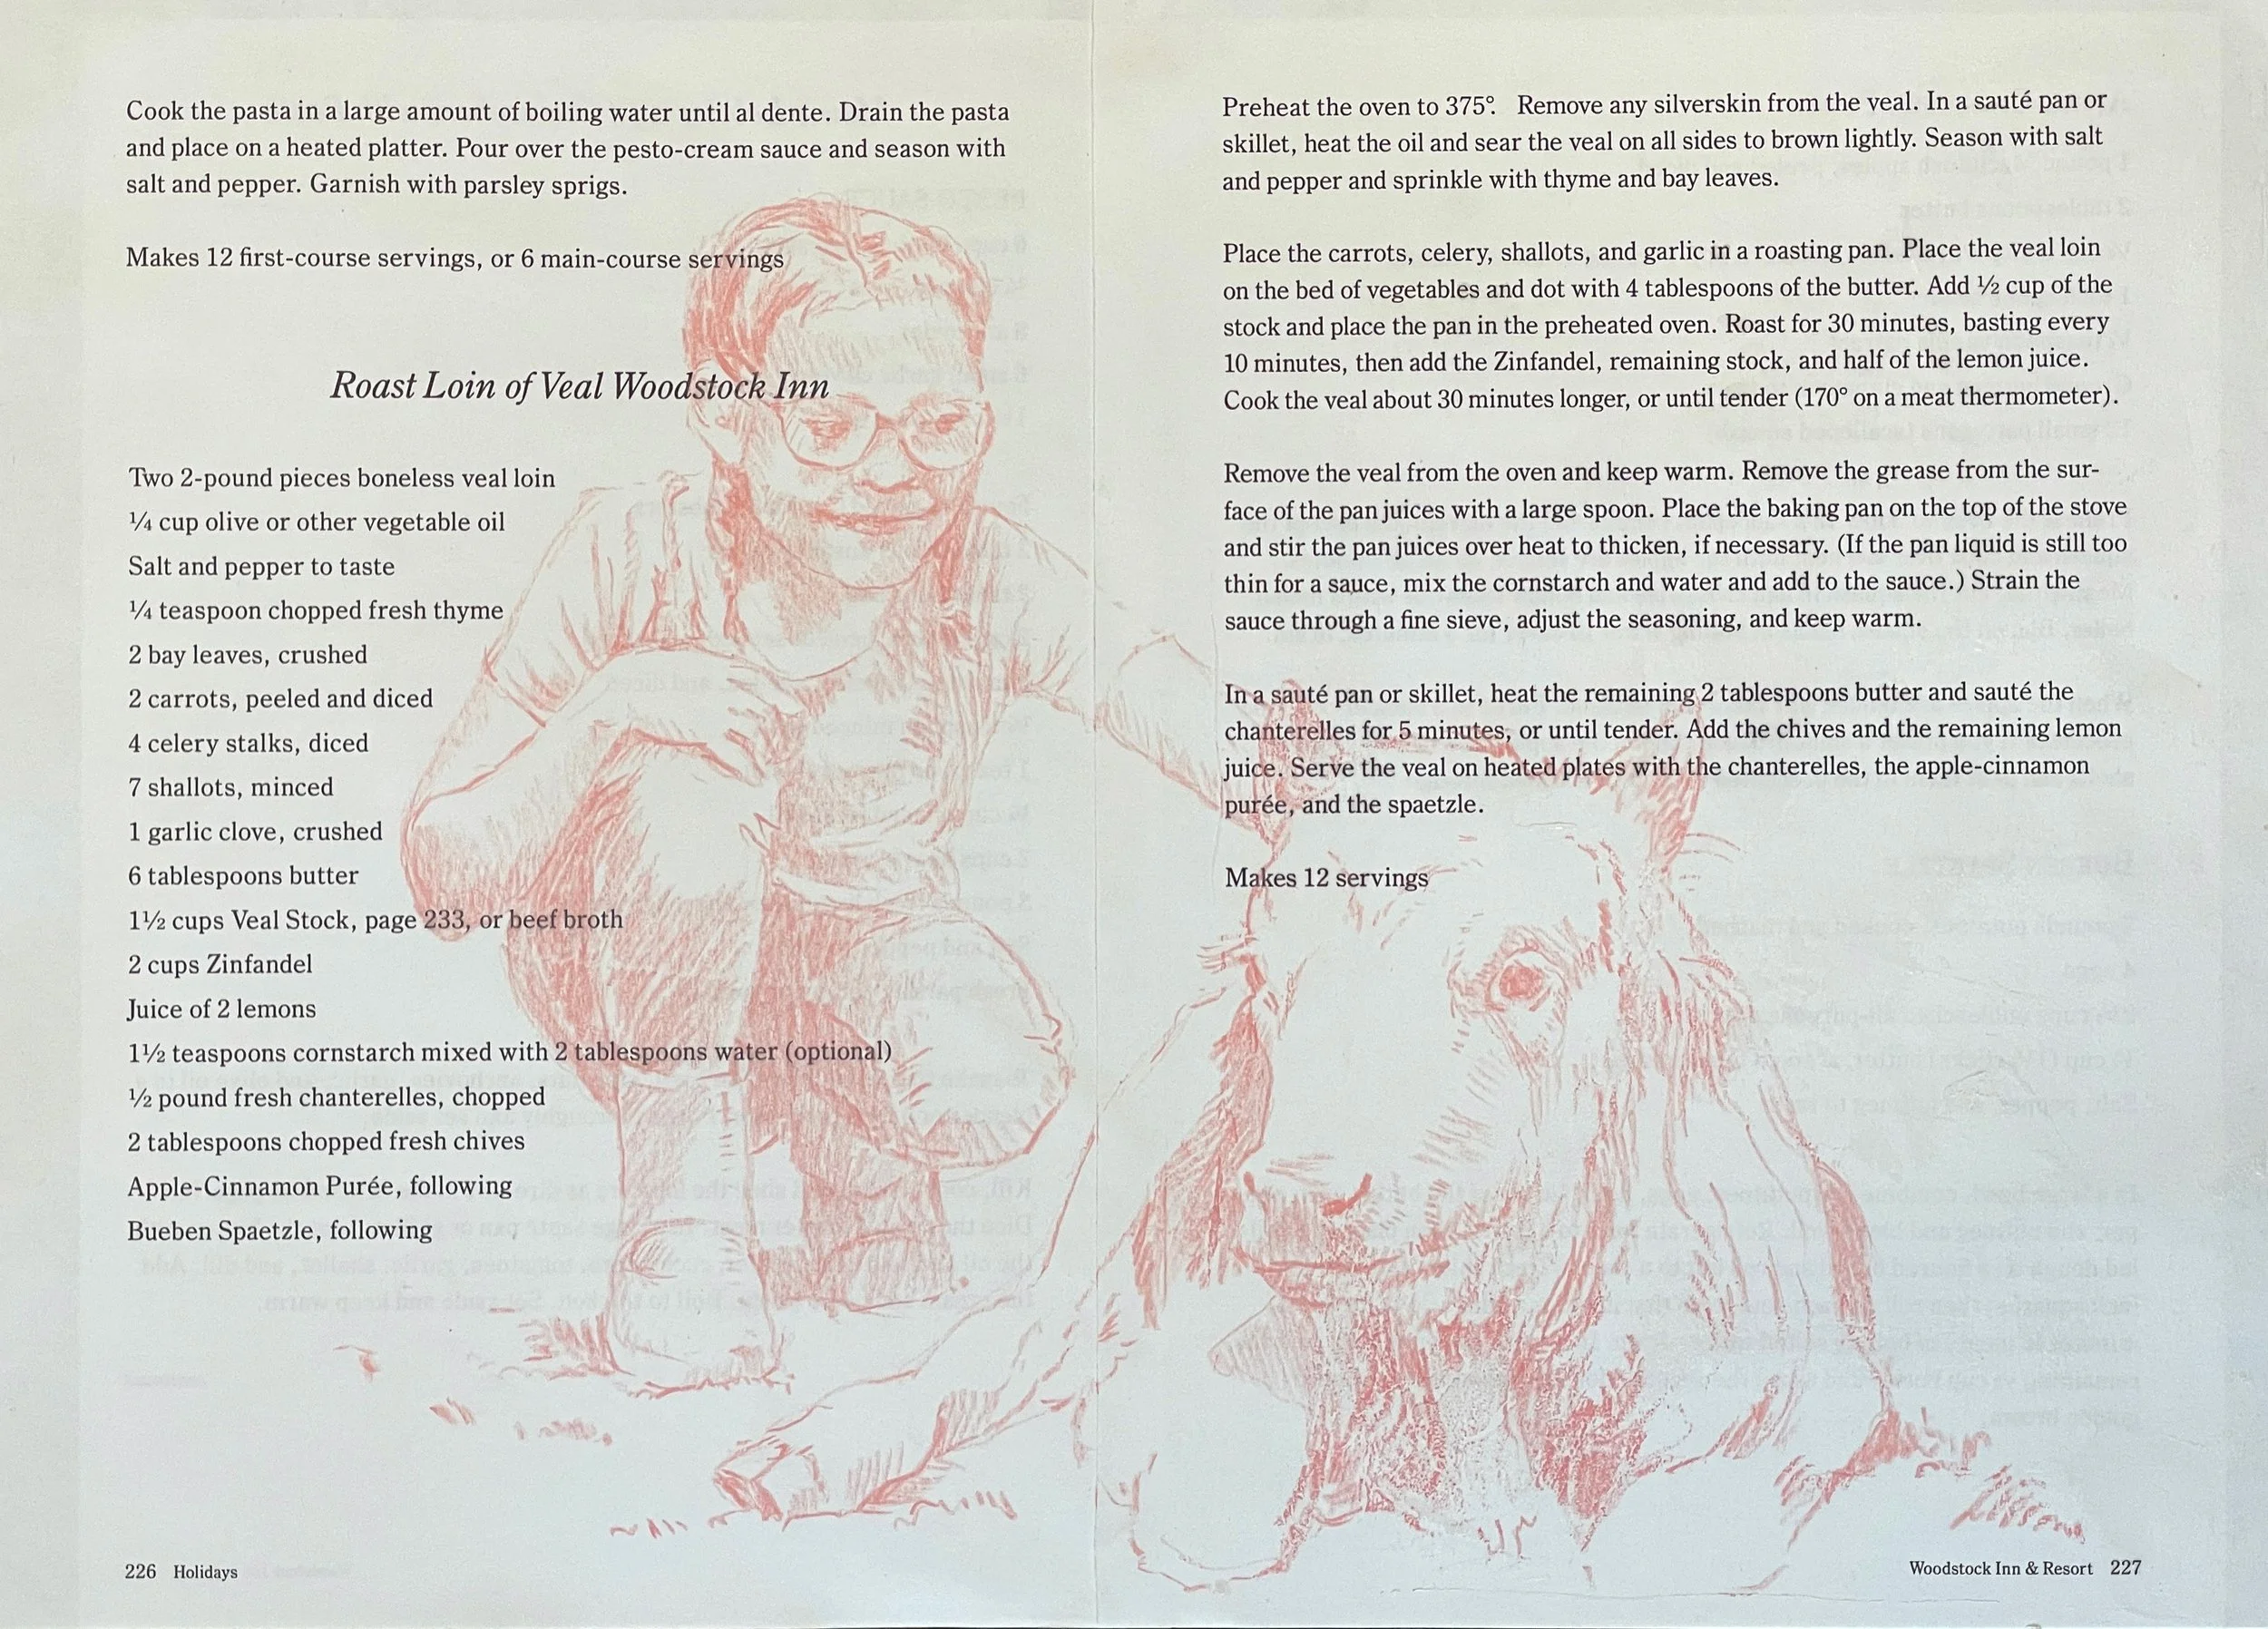 Cook the pasta in a large amount of boiling water until al dente. Drain the pasta
and place on a heated platter. Pour over the pesto-cream sauce and season with
salt and pepper. Garnish with parsley sprigs.
Makes 12 first-course servings, or 6 main-course servings
Roast Loin of Veal Woodstock Inn
Two 2-pound pieces boneless veal loin
¼ cup olive or other vegetable oil
Salt and pepper to taste
¼ teaspoon chopped fresh thyme
2 bay leaves, crushed
2 carrots, peeled and diced
4 celery stalks, diced
7 shallots, minced
1 garlic clove, crushed
6 tablespoons butter
1½ cups Veal Stock, page 233, or beef broth
2 cups Zinfandel
Juice of 2 lemons
1½ teaspoons cornstarch mixed with 2 tablespoons water (optional)
½ pound fresh chanterelles, chopped
2 tablespoons chopped fresh chives
Apple-Cinnamon Purée, following
Bueben Spaetzle, following
226 Holidays
Preheat the oven to 375°. Remove any silverskin from the veal. In a sauté pan or
skillet, heat the oil and sear the veal on all sides to brown lightly. Season with salt
and pepper and sprinkle with thyme and bay leaves.
Place the carrots, celery, shallots, and garlic in a roasting pan. Place the veal loin
on the bed of vegetables and dot with 4 tablespoons of the butter. Add ½ cup of the
stock and place the pan in the preheated oven. Roast for 30 minutes, basting every
10 minutes, then add the Zinfandel, remaining stock, and half of the lemon juice.
Cook the veal about 30 minutes longer, or until tender (170° on a meat thermometer).
Remove the veal from the oven and keep warm. Remove the grease from the sur-
face of the pan juices with a large spoon. Place the baking pan on the top of the stove
and stir the pan juices over heat to thicken, if necessary. (If the pan liquid is still too
thin for a sauce, mix the cornstarch and water and add to the sauce.) Strain the
sauce through a fine sieve, adjust the seasoning, and keep warm.
In a sauté pan or skillet, heat the remaining 2 tablespoons butter and sauté the
chanterelles for 5 minutes, or until tender. Add the chives and the remaining lemon
juice. Serve the veal on heated plates with the chanterelles, the apple-cinnamon
purée, and the spaetzle.
Makes 12 servings
Woodstock Inn & Resort 227